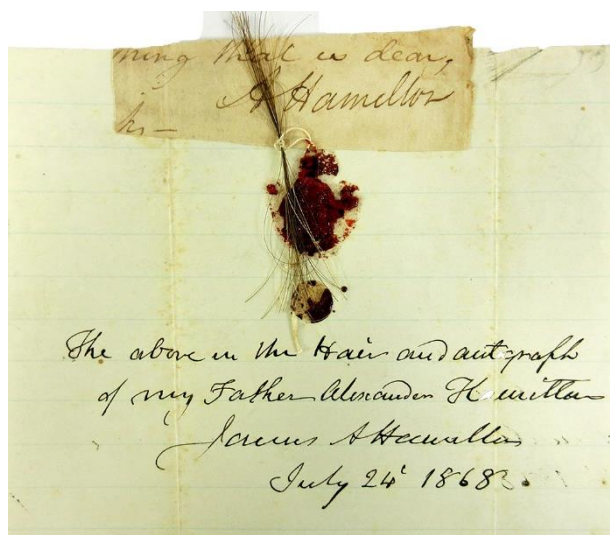 thing that is dear,
A Hamilton
The above is the Hair and autgraph
of my Father Alexander Hamilton
James A Hamilton
July 24 1868.